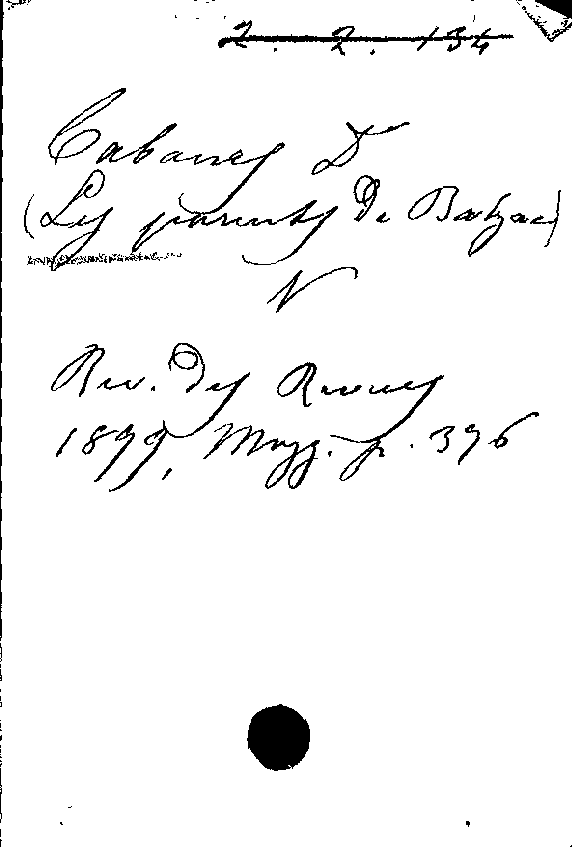 2. 2. 134
Cabanes Dr
(Les parents de Balzac)
N
Rev. des Revues
1899, Magg. p. 396